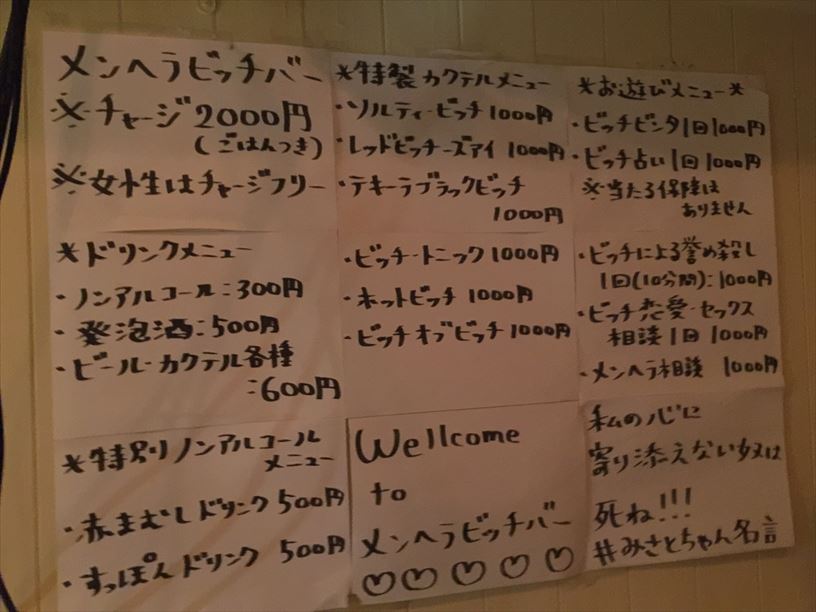 メンヘラビッチバー
※チャージ2000円
(ごはんつき)
※女性はチャージフリー
*ドリンクメニュー
・ノンアルコール:300円
・発泡酒:500円
・ビール・カクテル各種
:600円
*特別ノンアルコール
メニュー
・赤まむしドリンク 500円
・すっぽんドリンク 500円
*特製カクテルメニュー
・ソルティ・ビッチ 1000円
・レッドビッチーズアイ 1000円
・テキーラブラックビッチ
1000円
・ビッチ・トニック 1000円
・ホットビッチ 1000円
・ビッチオブビッチ 1000円
Wellcome
to
メンヘラビッチバー
♡♡♡♡♡
*お遊びメニュー*
・ビッチビンタ1回1000円
・ビッチ占い1回1000円
※当たる保障は
ありません
・ビッチによる誉め殺し
1回(10分間):1000円
・ビッチ恋愛・セックス
相談1回 1000円
・メンヘラ相談 1000円
私の心に
寄り添えない奴は
死ね!!!
#みさとちゃん名言